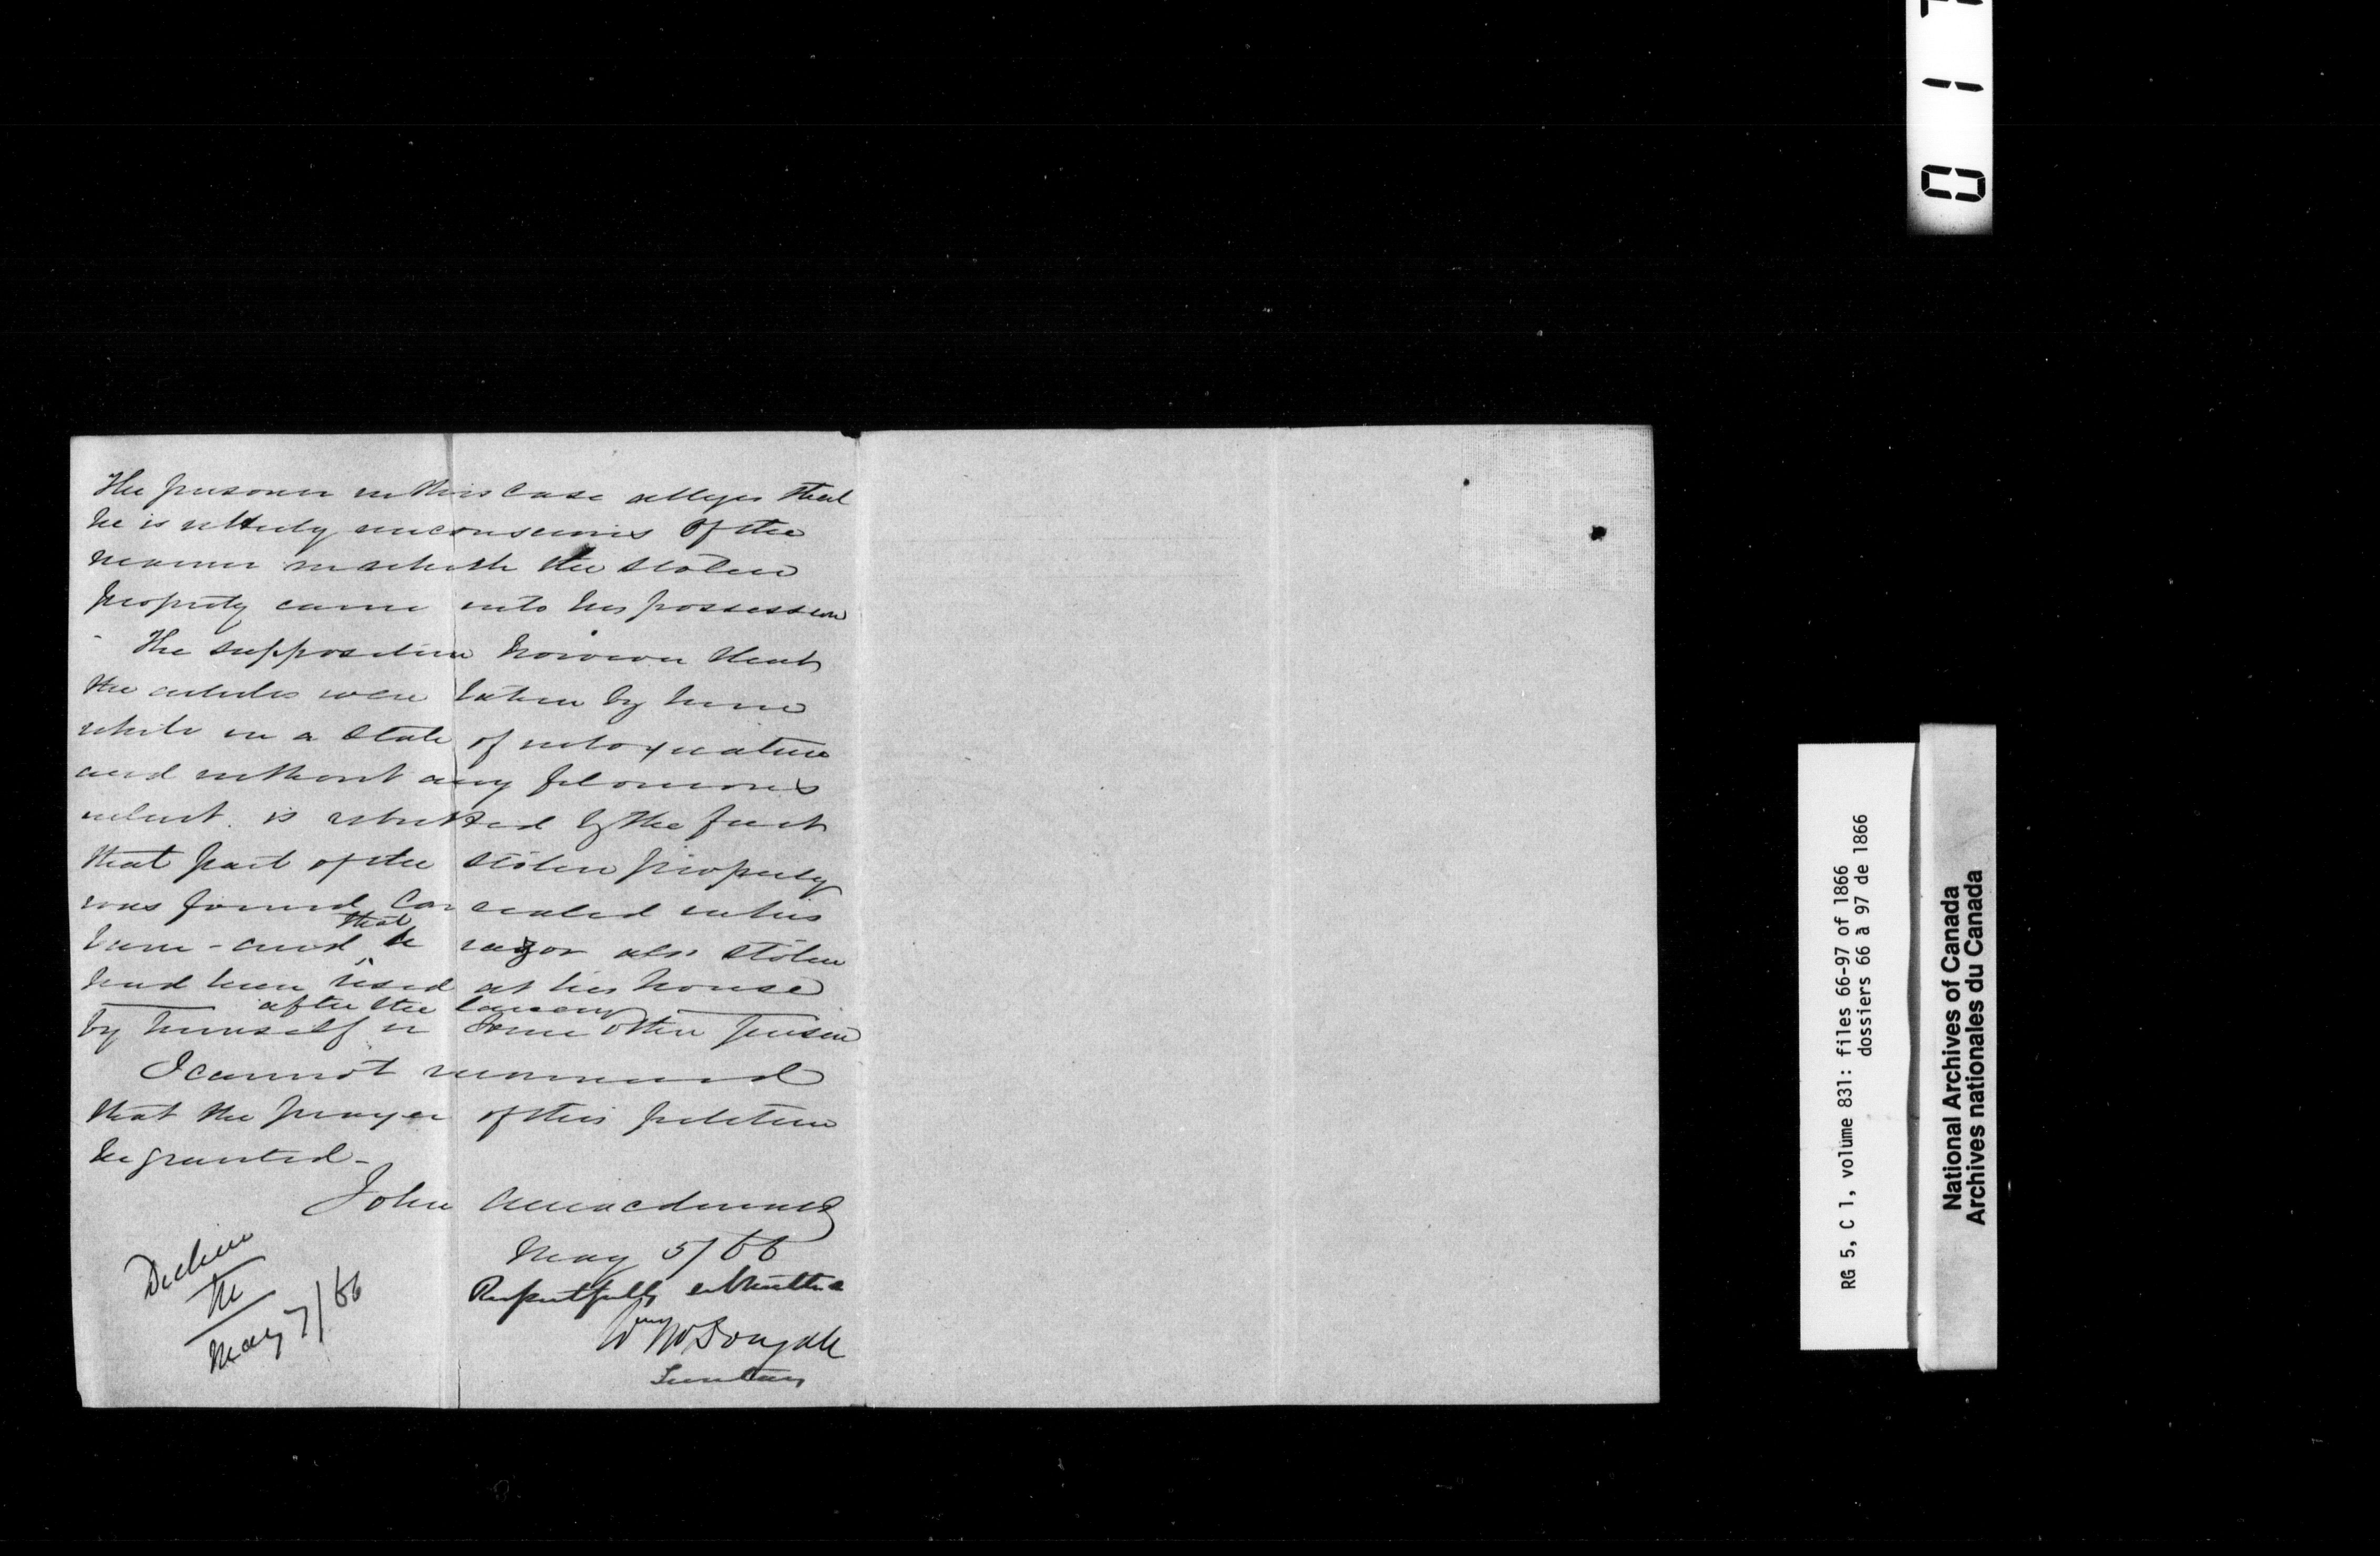 The prisoner in this case alleges that
he is utterly unconscious of the
manner in which the stolen
property came into his possession
The supposition however that
the articles were taken by him
while in a state of intoxication
and without any felonious
intent is rebutted by the fact
that part of the stolen property
was found concealed in his
barn - and that a razor also stolen
had been used at his house
after the larceny
by himself or some other person
I cannot recommend
that the prayer of this petition
be granted -
John A Macdonald
May 5/66
Respectfully submitted
Wm McDougall
Secretary
Decline
M
May 7/66
RG 5, C 1, volume 831: files 66-97 of 1866
dossiers 66 à 97 de 1866
National Archives of Canada
Archives nationales du Canada